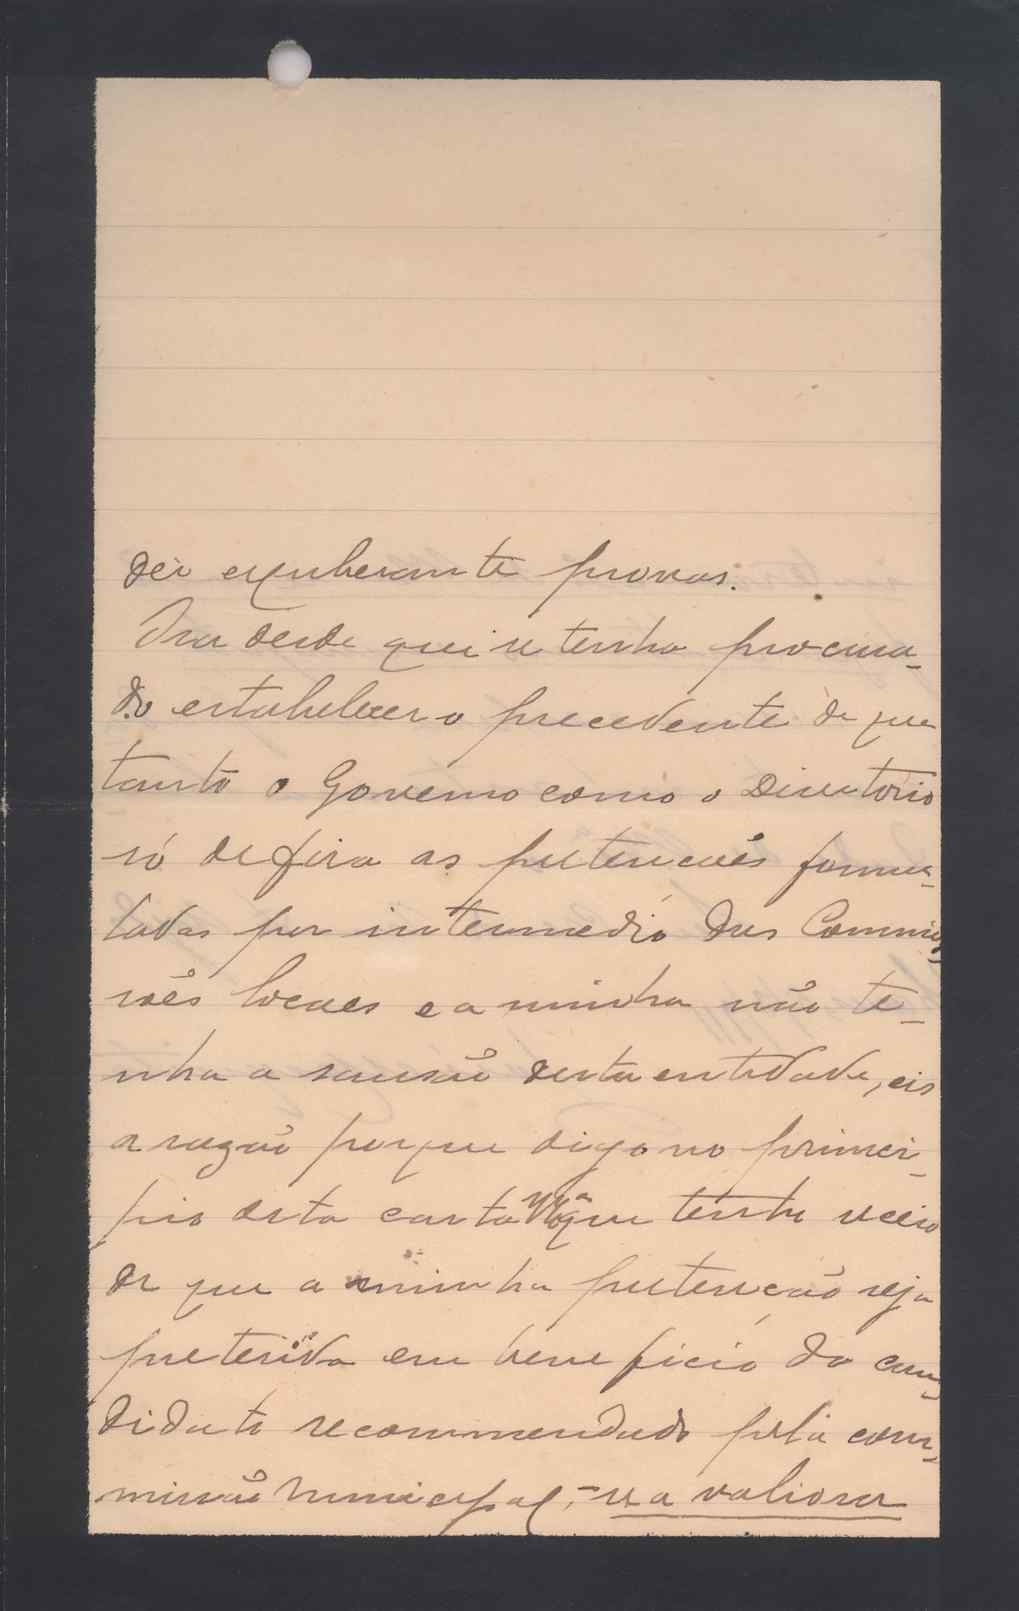 dér exuberante provas.
Ora desde que se tenha procura-
do estabelecer o precedente de que
tanto o Governo como o Directorio
só defira as pretenções formu-
ladas por intermedio das Commis-
sões locaes e a minha não te-
nha a sansão desta entidade, eis
a razão porque digo no princi-
pio desta carta que tenho receio
de que a minha pretenção seja
preterida em beneficio do can-
didato recommendado pela com-
missão Municipal, - se a valiosa